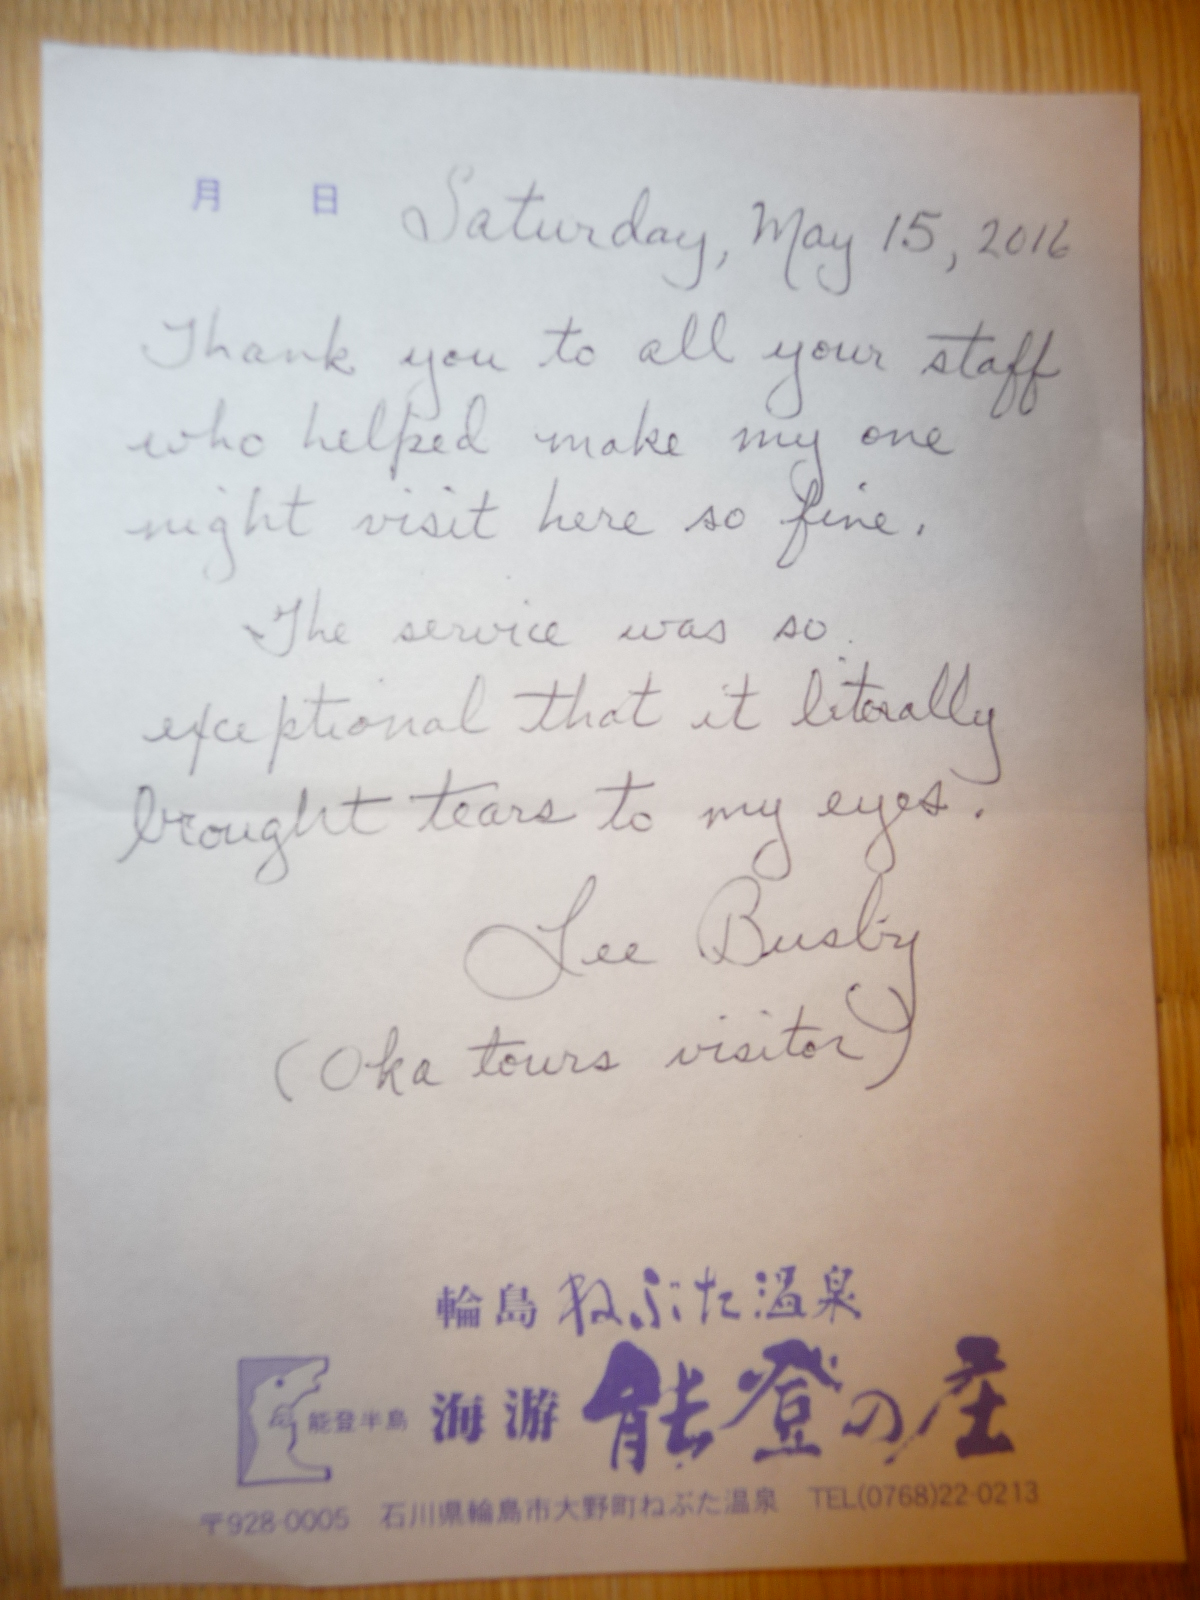 月 日 Saturday, May 15, 2016
Thank you to all your staff
who helped make my one
night visit here so fine.
The service was so
exceptional that it literally
brought tears to my eyes.
Lee Busby
(Oka tours visitor)
輪島 ねぶた温泉
能登半島 海游 能登の庄
〒928-0005 石川県輪島市大野町ねぶた温泉 TEL(0768)22-0213